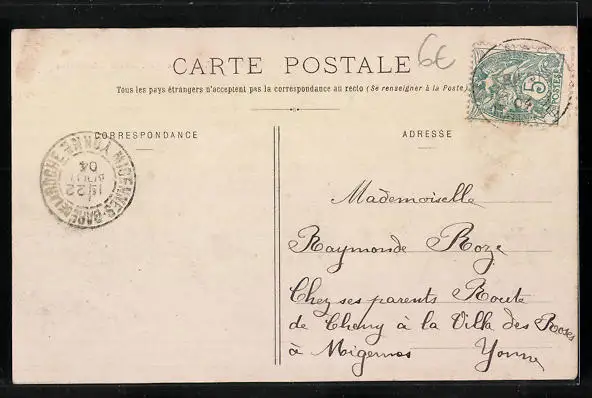 6€
CARTE POSTALE
Tous les pays étrangers n'acceptent pas la correspondance au recto (Se renseigner à la Poste)
CORRESPONDANCE
ADRESSE
5
POSTES
04
MIGENNES-GARE-LAROCHE YONNE
15/22
AOUT
04
Mademoiselle
Raymonde Roze
Chez ses parents Route
de Cheny à la Villa des Roses
à Migennes Yonne